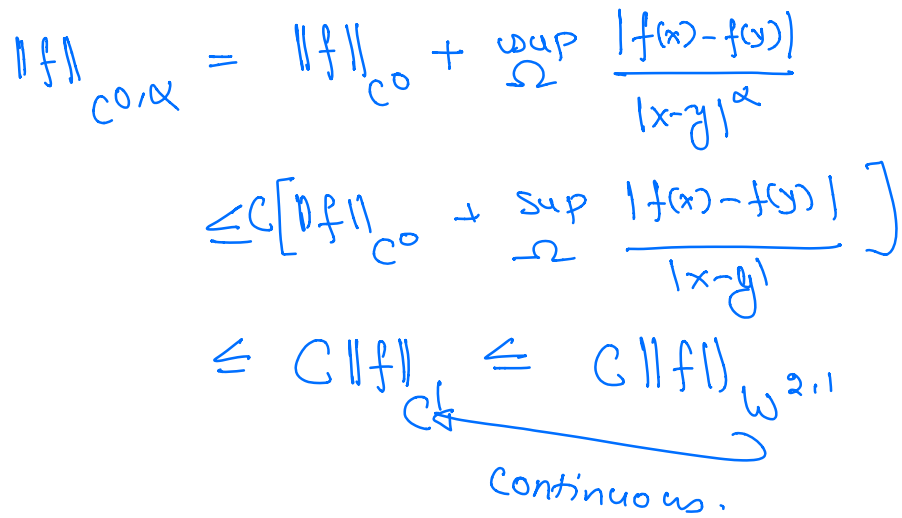 ‖f‖_{C^{0,α}} = ‖f‖_{C^0} + sup_Ω |f(x)-f(y)| / |x-y|^α
≤ C[‖f‖_{C^0} + sup_Ω |f(x)-f(y)| / |x-y|]
≤ C‖f‖_{C^1} ≤ C‖f‖_{W^{2,1}}
continuous.